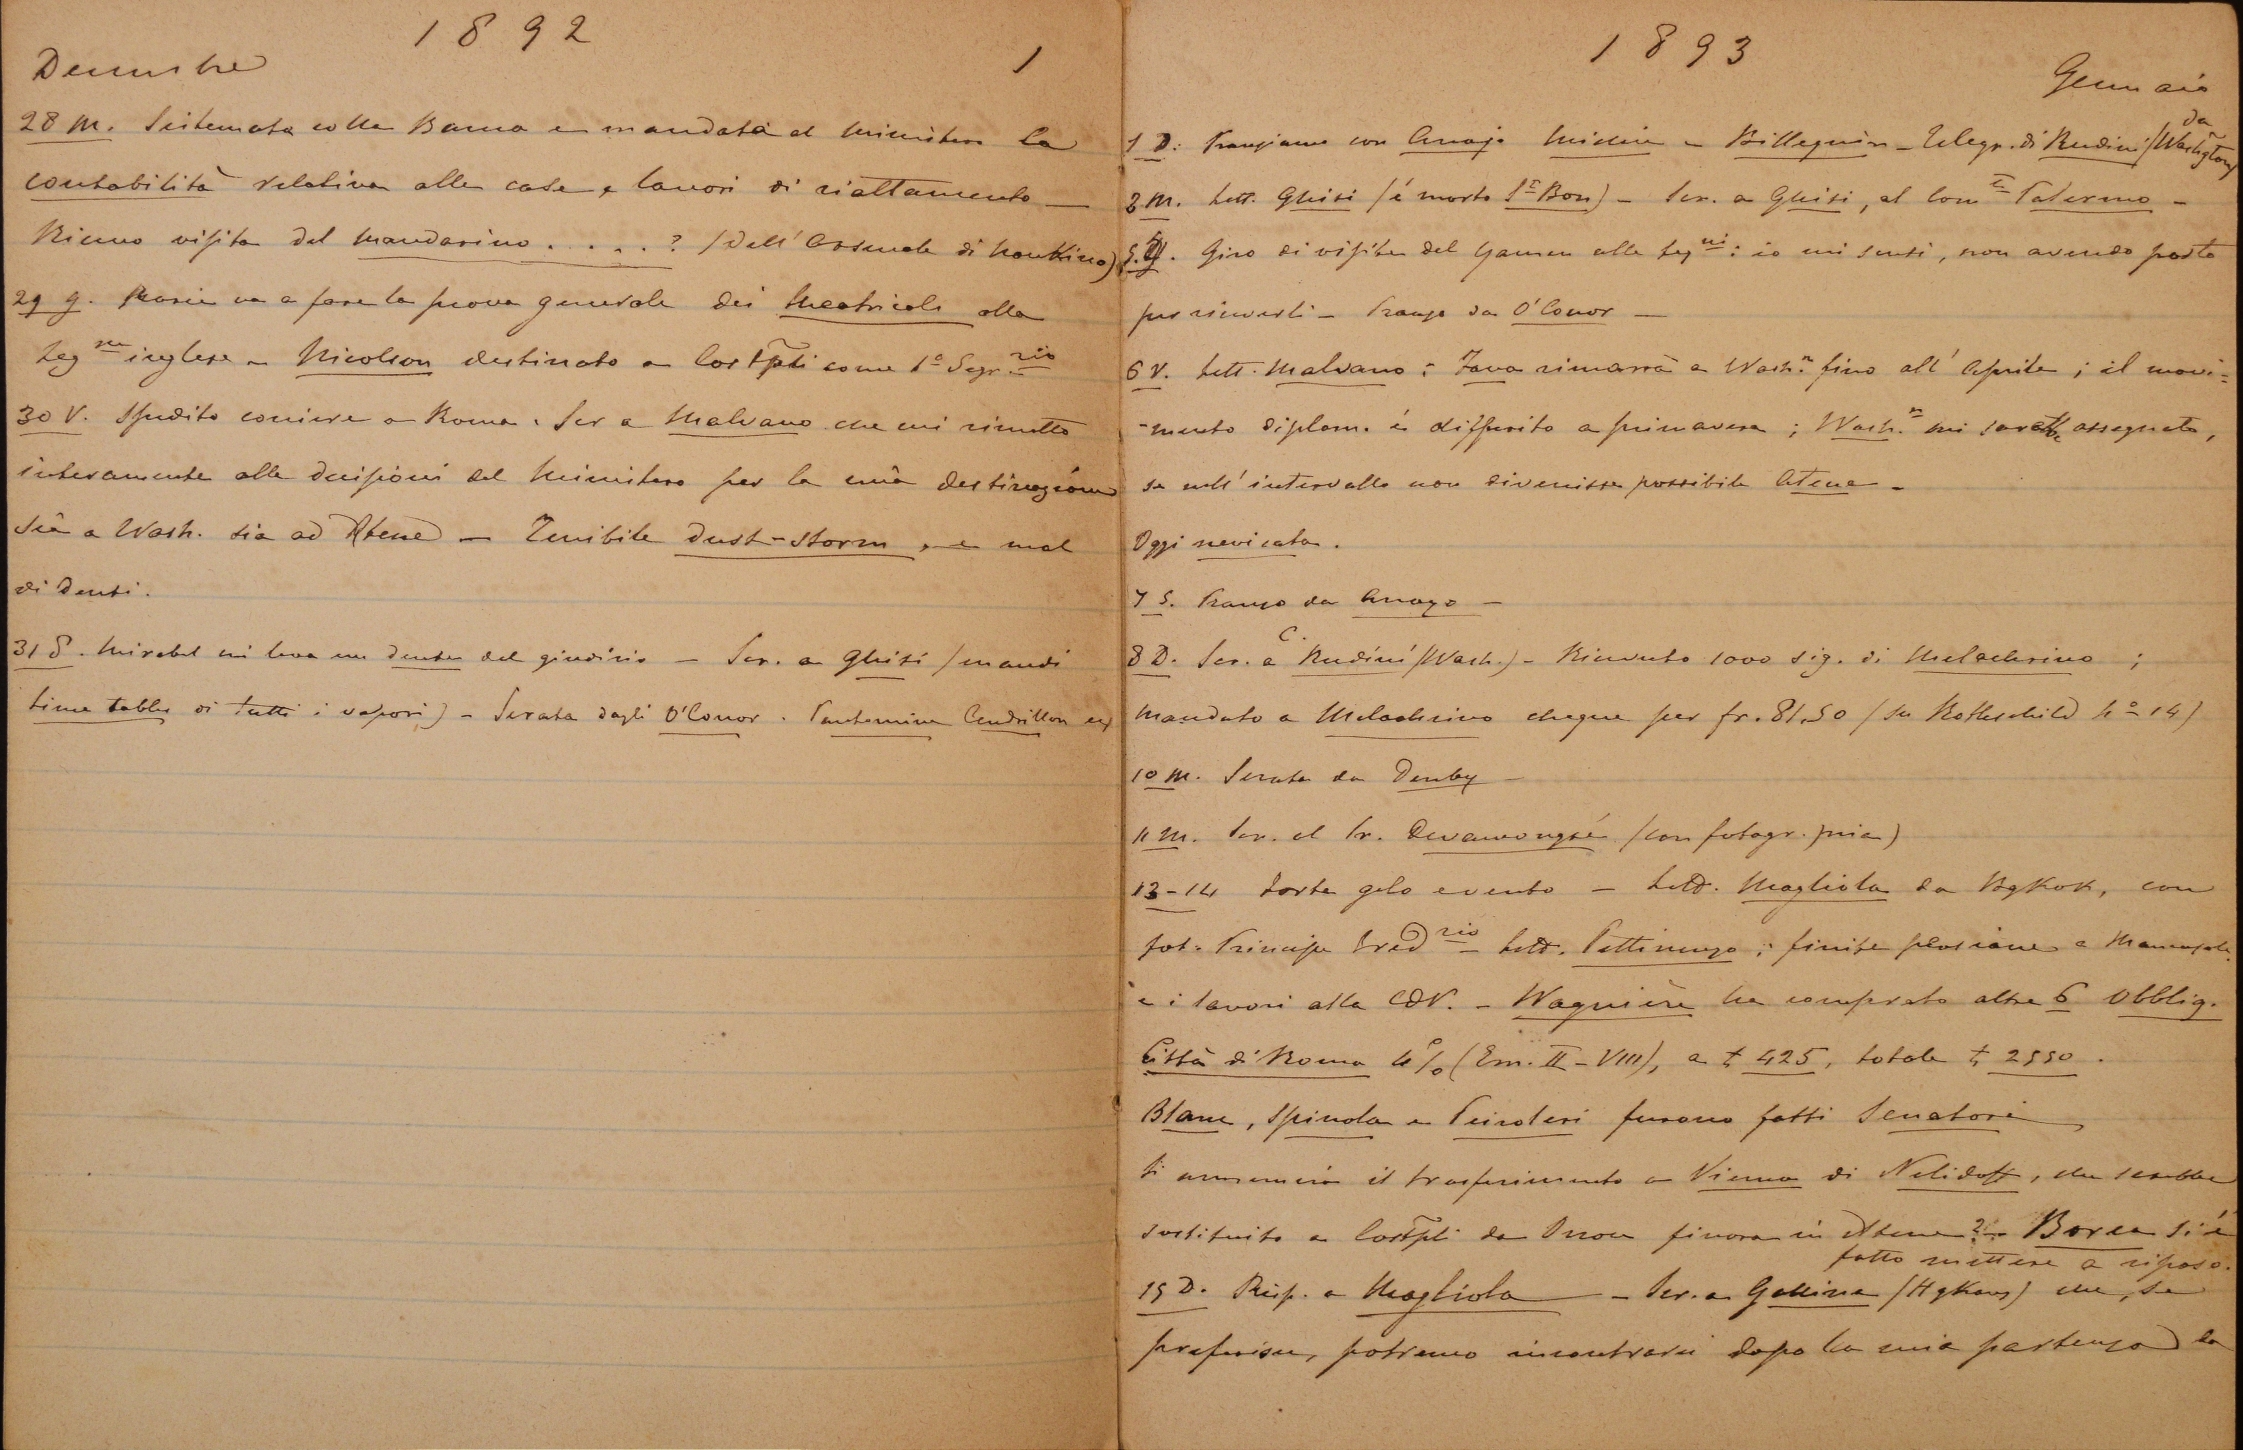 1892
1
Decembre
28 M. Sistemata colla Banca e mandata al Ministero la
contabilità relativa alle case e lavori di riattamento —
Ricevo visita del mandarino . . . . . ? (dell'Arsenale di Nankino)
29 G. Marie va a fare la prova generale dei theatricals alla
Leg.ne inglese — Nicolson destinato a Costpli come 1º Segr.rio
30 V. Spedito corriere a Roma. Scr a Malvano che mi rimetto
interamente alle decisioni del Ministero per la mia destinazione
sia a Wash. sia ad Atene — Terribile dust-storm, e mal
di denti.
31 S. Mirabel mi leva un dente del giudizio — Scr. a Ghisi (mandi
time tables di tutti i vapori) — Serata dagli O'Conor. Pantomime Cendrillon
1893
Gennaio
1 D. Pranziamo con Arrajo — Billequin — Telegr. di Rudini (da Washgton)
3 M. Lett. Ghisi (è morto Sr Bon) — Scr. a Ghisi, al Com.te Palermo —
5. G. Giro di visite del Yamen alle Leg.ni: io mi scusi, non avendo posto
per riceverli — Pranzo da O'Conor —
6 V. Lett. Malvano: Fava rimarrà a Wash.n fino all'Aprile; il movi=
-mento diplom. è differito a primavera; Wash.n mi sarebbe assegnato,
se nell'intervallo non divenisse possibile Atene —
Oggi nevicata.
7 S. Pranzo da Arrayo —
8 D. Scr. a C. Rudini (Wash.) — Ricevuto 1000 sig. di Melachrino;
mandato a Melachrino cheque per fr. 81,50 (su Rothschild Nº 14)
10 M. Serata da Denby —
11 M. Scr. al Pr. Devawongsé (con fotogr. mia)
13-14 Forte gelo e vento — Lett. Magliola da Bgkok, con
fot. Principe Ered.rio — Lett. Pettinengo: finite
e i lavori alla CdV. — Wagnière ha comprato altre 6 Obblig.
Città di Roma 4% (Em. II-VIII), a £ 425, totale £ 2550.
Blanc, Spinola e Peiroleri furono fatti Senatori
Si annuncia il trasferimento a Vienna di Nelidoff, che sarebbe
sostituito a Costpli da Onou finora in Atene? — Borea si è
fatto mettere a riposo.
15 D. Risp. a Magliola — Scr. a Gallina (HgKong) che, se
preferisce, potremo incontrarci dopo la mia partenza da